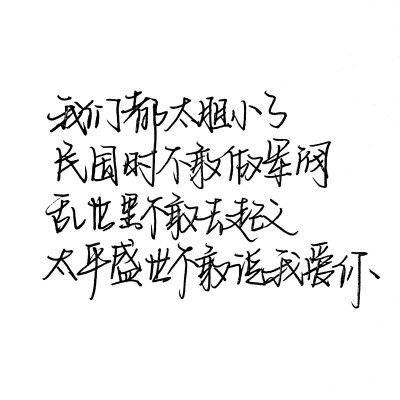 我们都太胆小了
民国时不敢做军阀
乱世里不敢去起义
太平盛世不敢说我爱你、